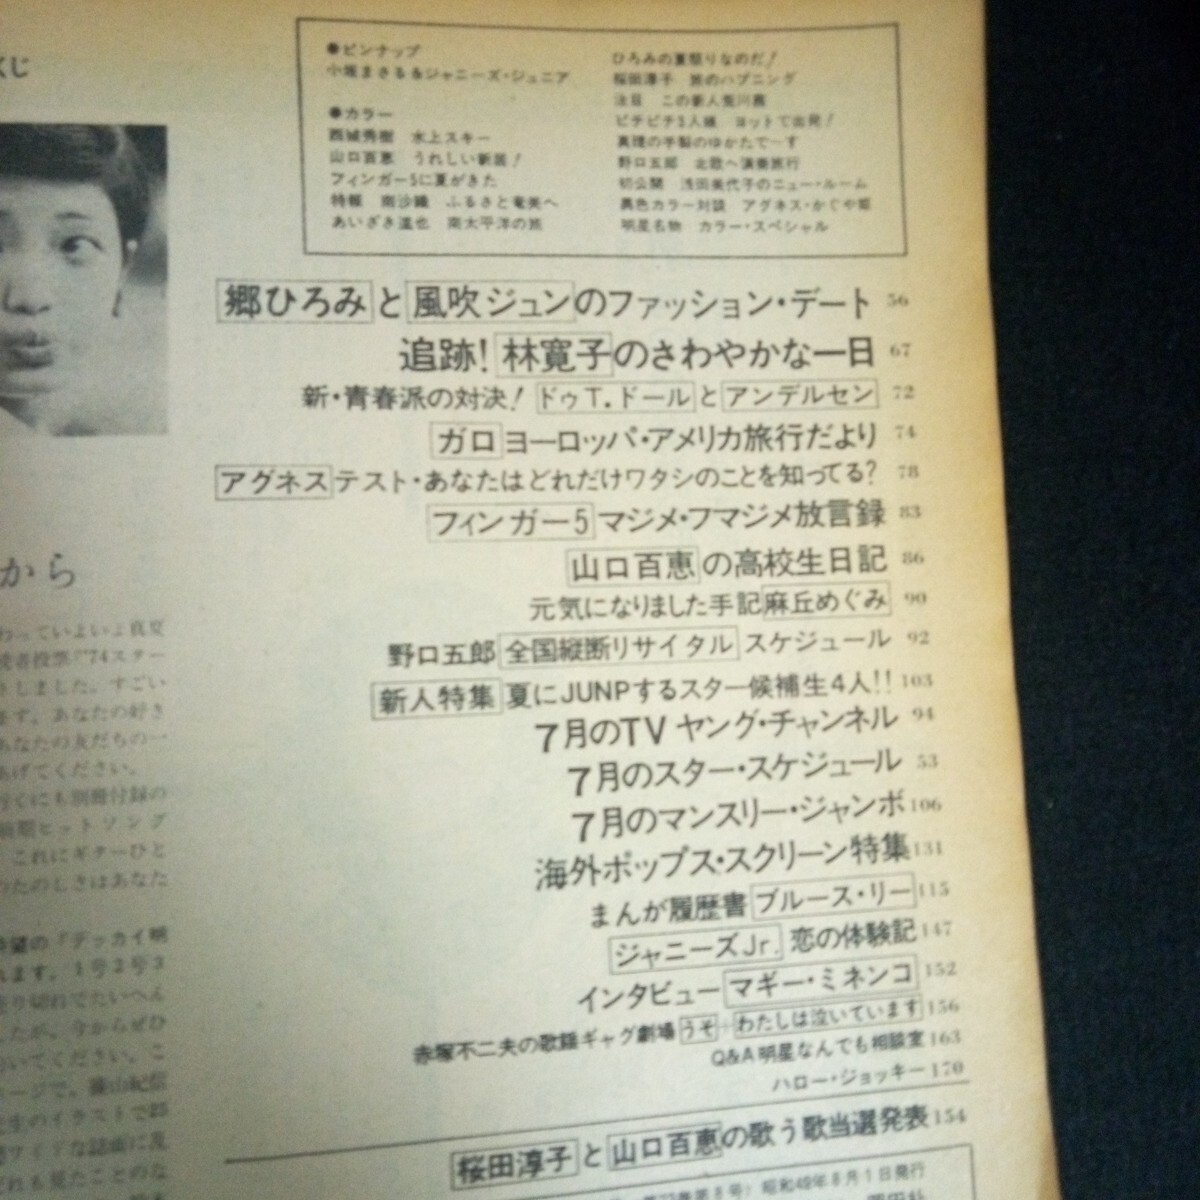 くじ
●ピンナップ
小坂まさる&ジャニーズ・ジュニア
●カラー
西城秀樹 水上スキー
山口百恵 うれしい新居!
フィンガー5に夏がきた
特報 南沙織 ふるさと奄美へ
あいざき進也 南太平洋の旅
ひろみの夏祭りなのだ!
桜田淳子 旅のハプニング
注目 この新人荒川務
ピチピチ3人娘 ヨットで出発!
真理の手製のゆかたで〜す
野口五郎 北欧へ演奏旅行
初公開 浅田美代子のニュー・ルーム
異色カラー対談 アグネス・かぐや姫
明星名物 カラー・スペシャル
郷ひろみと風吹ジュンのファッション・デート 56
追跡!林寛子のさわやかな一日 67
新・青春派の対決!ドゥT.ドールとアンデルセン 72
ガロヨーロッパ・アメリカ旅行だより 74
アグネステスト・あなたはどれだけワタシのことを知ってる? 78
フィンガー5マジメ・フマジメ放言録 83
山口百恵の高校生日記 86
元気になりました手記麻丘めぐみ 90
野口五郎全国縦断リサイタルスケジュール 92
新人特集夏にJUNPするスター候補生4人!! 103
7月のTVヤング・チャンネル 94
7月のスター・スケジュール 53
7月のマンスリー・ジャンボ 106
海外ポップス・スクリーン特集 131
まんが履歴書ブルース・リー 115
ジャニーズJr.恋の体験記 147
インタビューマギー・ミネンコ 152
赤塚不二夫の歌謡ギャグ劇場うそ+わたしは泣いています 156
Q&A明星なんでも相談室 163
ハロー・ジョッキー 170
桜田淳子と山口百恵の歌う歌当選発表 154
昭和49年8月1日発行
から
わっていよいよ真夏
読者投票『'74スター
しました。すごい
ます。あなたの好き
あなたの友だちの一
あげてください。
行くにも別冊付録の
前期ヒットソング
これにギターひと
のたのしさはあなた
希望の『デッカイ明
れます。1号2号3
売り切れでたいへん
したが、今からぜひ
おいてください。こ
ページで、篠山紀信
先生のイラストで25